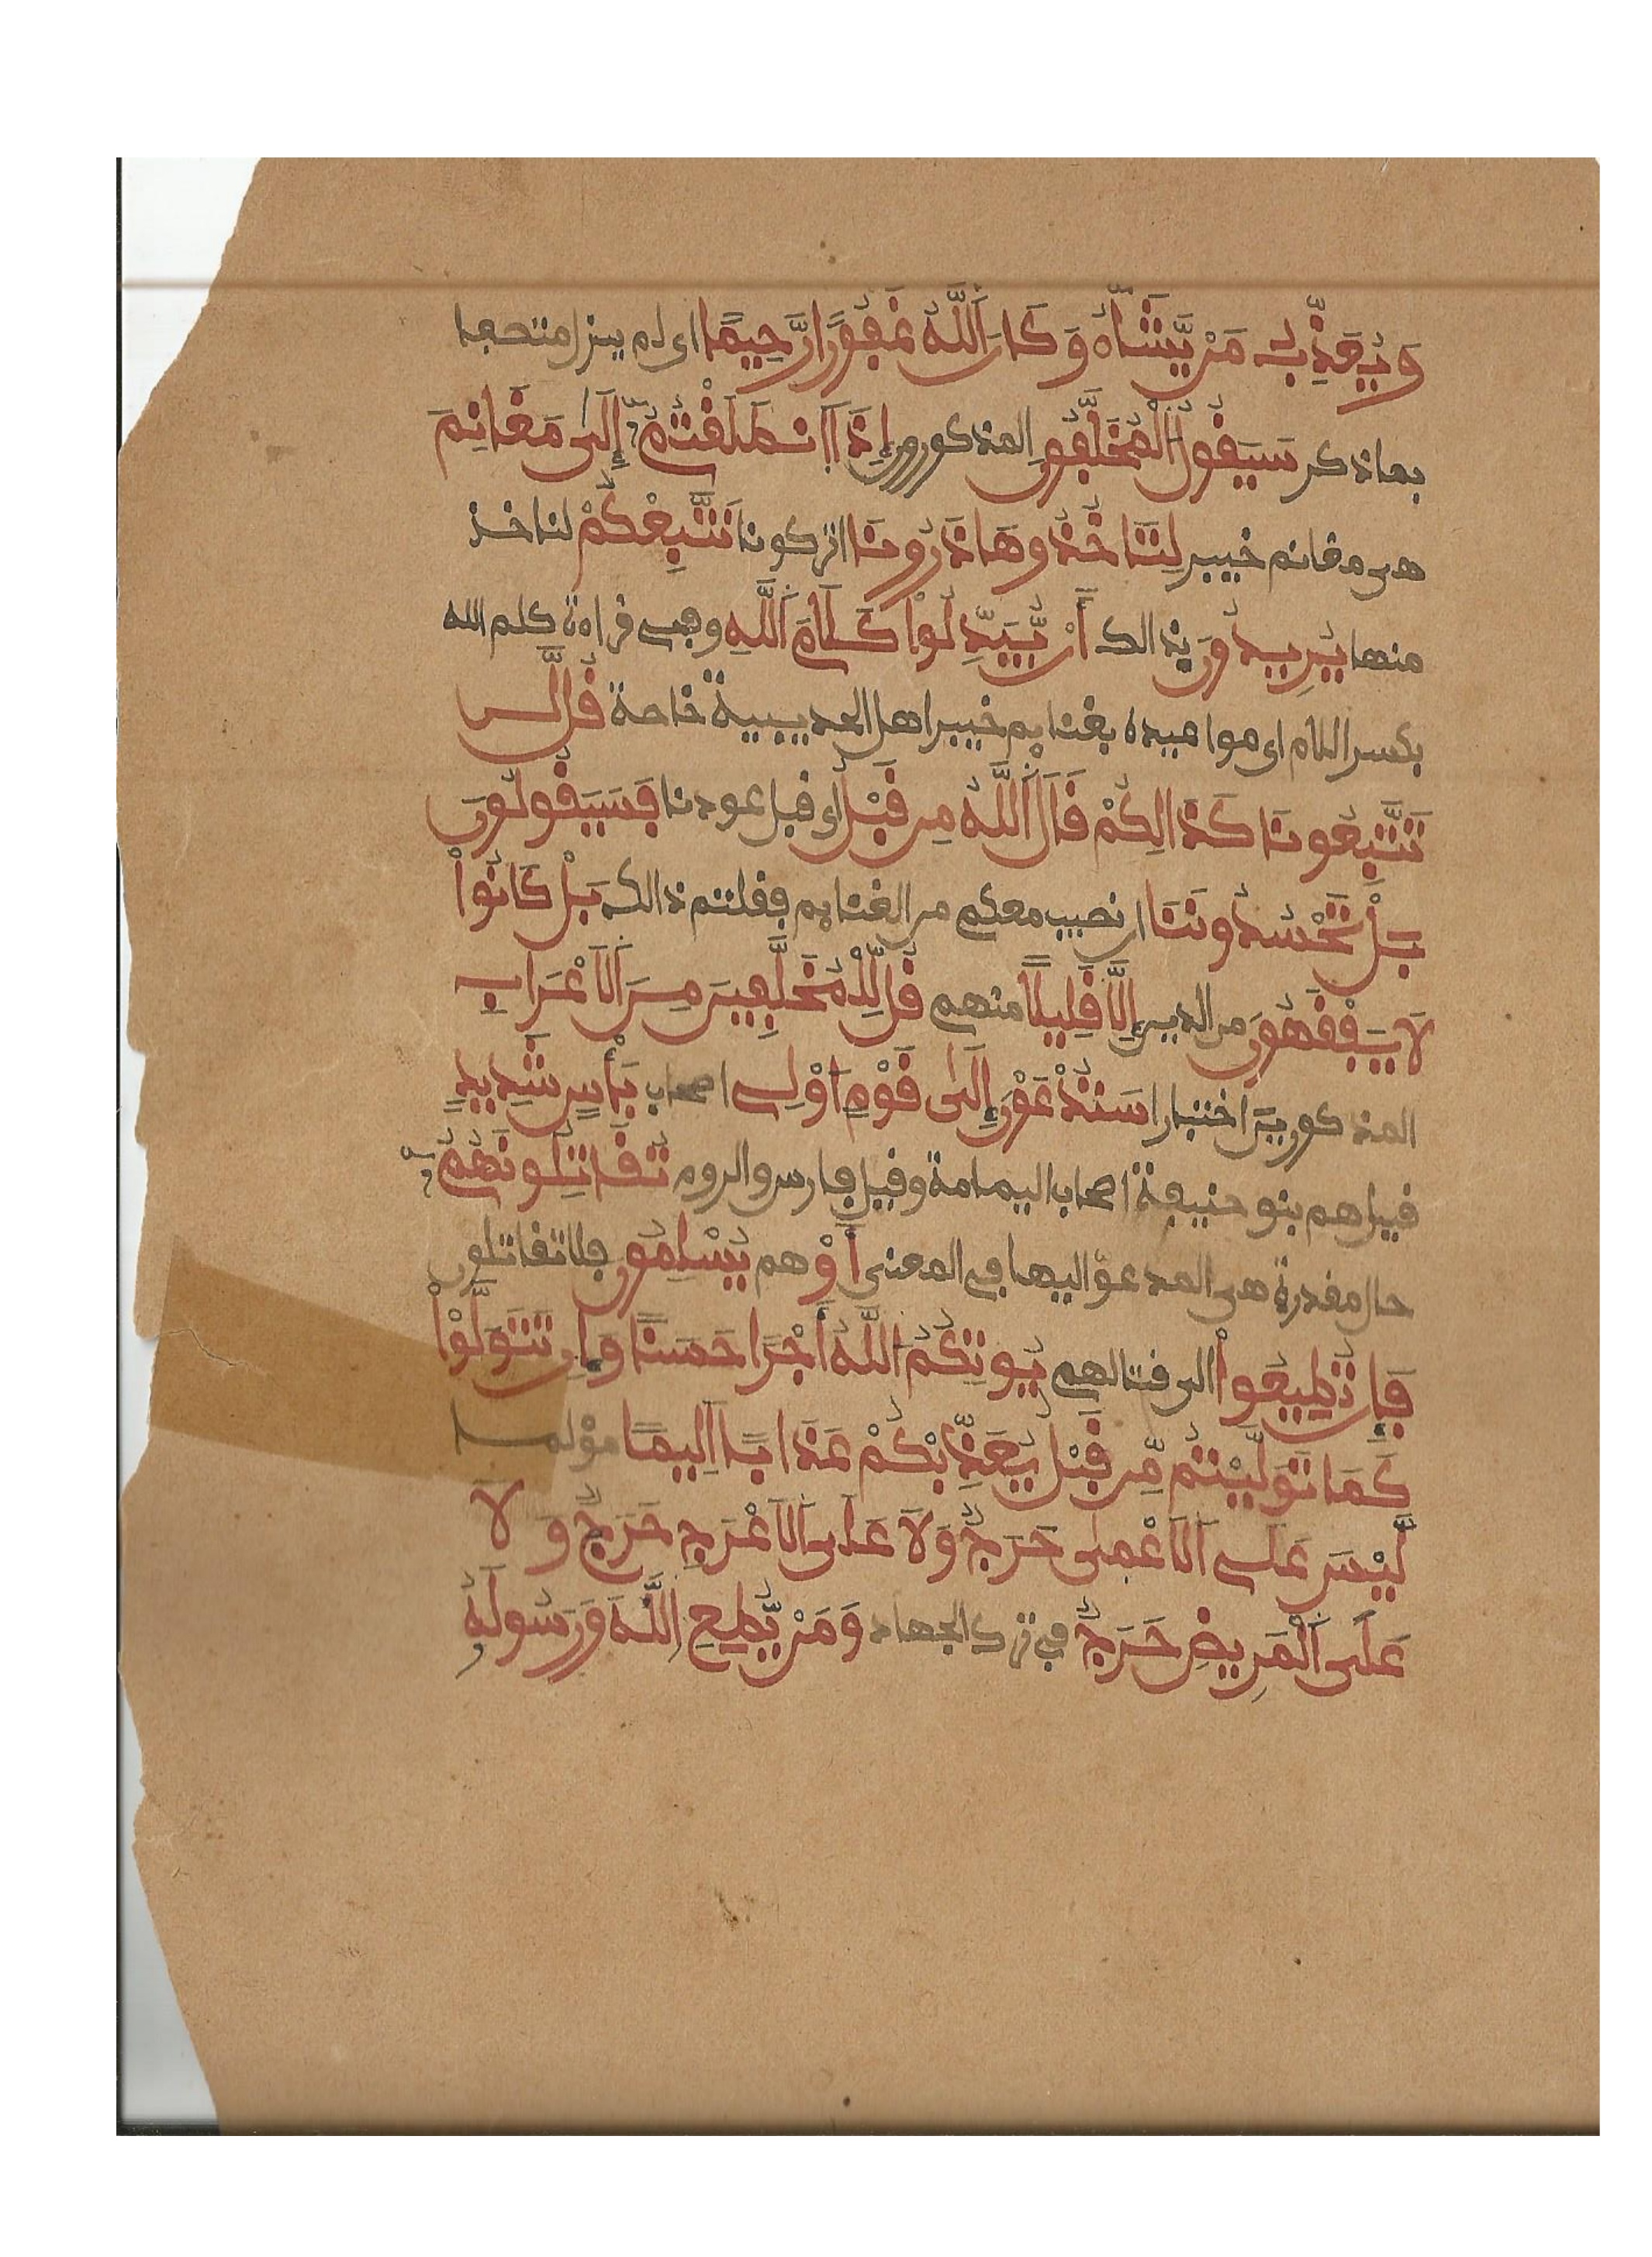 وَيُعَذِّبُ مَنْ يَّشَآءُ وَكَانَ اَللَّهُ غَفُورًا رَّحِيمًا اى لم يزل متصفا
بما ذكر سَيَقُولُ اُلْمُخَلَّفُونَ المذكورون إِذَا اَنطَلَقْتُمُۥٓ إِلَىٰ مَغَانِمَ
هى مغانم خيبر لِتَاخُذُوهَا ذَرُونَا اتركونا نَتَّبِعْكُمْ لناخذ
منها يُرِيدُونَ بذالك أَنْ يُّبَدِّلُواْ كَلَامَ اَللَّهِ وفى قراءة كلم الله
بكسر اللام اى مواعيده بغنايم خيبر اهل الحديبية خاصة قُل لَّن
تَتَّبِعُونَا كَذَالِكُمْ قَالَ اَللَّهُ مِن قَبْلُ اى قبل عودنا فَسَيَقُولُونَ
بَلْ تَحْسُدُونَنَا ان نصيب معكم من الغنايم فقلتم ذالك بَلْ كَانُواْ
لَا يَفْقَهُونَ من الدين إِلَّا قَلِيلًا منهم قُل لِّلْمُخَلَّفِينَ مِنَ اَلَاعْرَابِ
المذكورين اختبارا سَتُدْعَوْنَ إِلَىٰ قَوْمٍ اوْلِى اصحاب بَأْسٍ شَدِيدٍ
قيل هم بنو حنيفة اصحاب اليمامة وقيل فارس والروم تُقَاتِلُونَهُمُۥٓ
حال مقدرة هى المدعوّ اليها فى المعنى أَوْ هم يُسْلِمُونَ فلا تقاتلون
فَإِن تُطِيعُواْ الى قتالهم يُوتِكُمُ اُللَّهُ أَجْرًا حَسَنًا وَإِن تَتَوَلَّوْاْ
كَمَا تَوَلَّيْتُم مِّن قَبْلُ يُعَذِّبْكُمْ عَذَابًا اَلِيمًا مؤلما
لَّيْسَ عَلَى اَلَاعْمَىٰ حَرَجٌ وَلَا عَلَى اَلَاعْرَجِ حَرَجٌ وَلَا
عَلَى اَلْمَرِيضِ حَرَجٌ فى ترك الجهاد وَمَنْ يُّطِعِ اِللَّهَ وَرَسُولَهُۥ